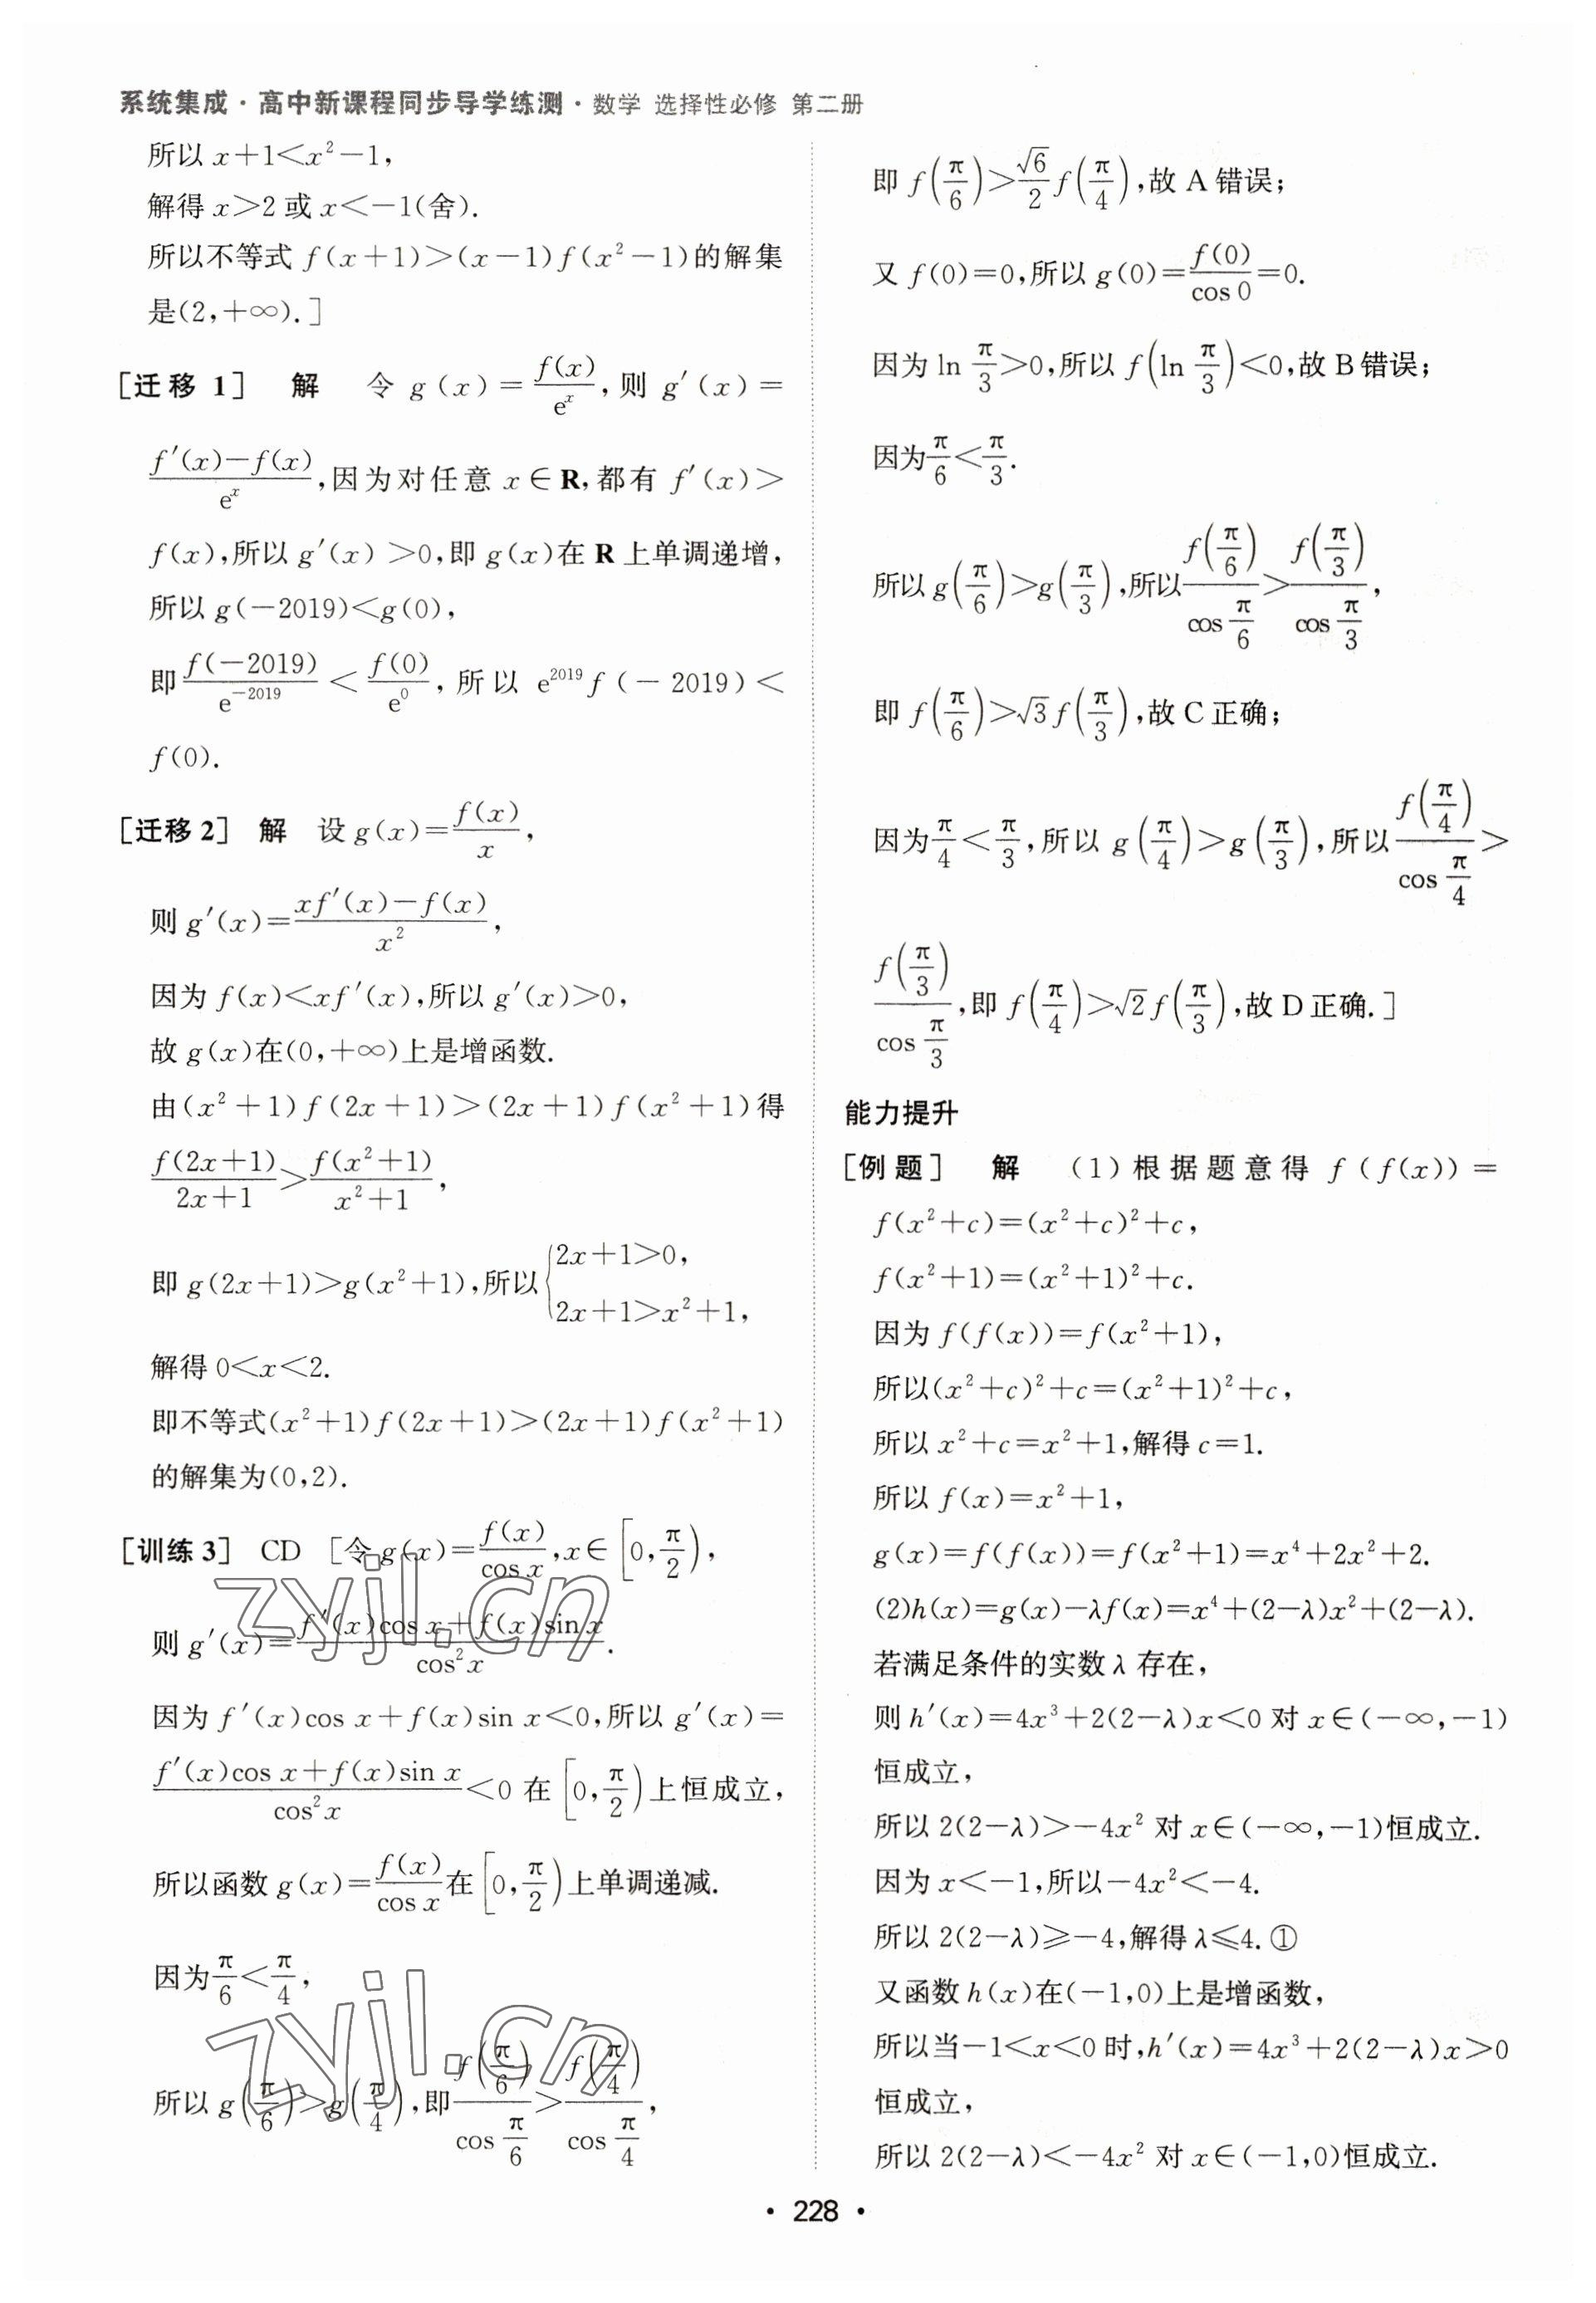 系统集成·高中新课程同步导学练测·数学 选择性必修 第二册
所以 x+1<x²-1,
解得 x>2 或 x<-1(舍).
所以不等式 f(x+1)>(x-1)f(x²-1)的解集
是(2,+∞).]
[迁移 1] 解 令 g(x)=\frac{f(x)}{e^x},则 g′(x)=
\frac{f′(x)-f(x)}{e^x},因为对任意 x∈R,都有 f′(x)>
f(x),所以 g′(x)>0,即 g(x)在 R 上单调递增,
所以 g(-2019)<g(0),
即\frac{f(-2019)}{e^{-2019}}<\frac{f(0)}{e^0},所以 e^{2019}f(-2019)<
f(0).
[迁移 2] 解 设 g(x)=\frac{f(x)}{x},
则 g′(x)=\frac{xf′(x)-f(x)}{x²},
因为 f(x)<xf′(x),所以 g′(x)>0,
故 g(x)在(0,+∞)上是增函数.
由(x²+1)f(2x+1)>(2x+1)f(x²+1)得
\frac{f(2x+1)}{2x+1}>\frac{f(x²+1)}{x²+1},
即 g(2x+1)>g(x²+1),所以{2x+1>0,
2x+1>x²+1,
解得 0<x<2.
即不等式(x²+1)f(2x+1)>(2x+1)f(x²+1)
的解集为(0,2).
[训练 3] CD [令 g(x)=\frac{f(x)}{cos x},x∈[0,\frac{π}{2}),
则 g′(x)=\frac{f′(x)cos x+f(x)sin x}{cos²x}.
因为 f′(x)cos x+f(x)sin x<0,所以 g′(x)=
\frac{f′(x)cos x+f(x)sin x}{cos²x}<0 在[0,\frac{π}{2})上恒成立,
所以函数 g(x)=\frac{f(x)}{cos x}在[0,\frac{π}{2})上单调递减.
因为\frac{π}{6}<\frac{π}{4},
所以 g(\frac{π}{6})>g(\frac{π}{4}),即\frac{f(\frac{π}{6})}{cos\frac{π}{6}}>\frac{f(\frac{π}{4})}{cos\frac{π}{4}},
即 f(\frac{π}{6})>\frac{√6}{2}f(\frac{π}{4}),故 A 错误;
又 f(0)=0,所以 g(0)=\frac{f(0)}{cos 0}=0.
因为 ln\frac{π}{3}>0,所以 f(ln\frac{π}{3})<0,故 B 错误;
因为\frac{π}{6}<\frac{π}{3}.
所以 g(\frac{π}{6})>g(\frac{π}{3}),所以\frac{f(\frac{π}{6})}{cos\frac{π}{6}}>\frac{f(\frac{π}{3})}{cos\frac{π}{3}},
即 f(\frac{π}{6})>√3f(\frac{π}{3}),故 C 正确;
因为\frac{π}{4}<\frac{π}{3},所以 g(\frac{π}{4})>g(\frac{π}{3}),所以\frac{f(\frac{π}{4})}{cos\frac{π}{4}}>
\frac{f(\frac{π}{3})}{cos\frac{π}{3}},即 f(\frac{π}{4})>√2f(\frac{π}{3}),故 D 正确.]
能力提升
[例题] 解 (1)根据题意得 f(f(x))=
f(x²+c)=(x²+c)²+c,
f(x²+1)=(x²+1)²+c.
因为 f(f(x))=f(x²+1),
所以(x²+c)²+c=(x²+1)²+c,
所以 x²+c=x²+1,解得 c=1.
所以 f(x)=x²+1,
g(x)=f(f(x))=f(x²+1)=x⁴+2x²+2.
(2)h(x)=g(x)-λf(x)=x⁴+(2-λ)x²+(2-λ).
若满足条件的实数 λ 存在,
则 h′(x)=4x³+2(2-λ)x<0 对 x∈(-∞,-1)
恒成立,
所以 2(2-λ)>-4x² 对 x∈(-∞,-1)恒成立.
因为 x<-1,所以-4x²<-4.
所以 2(2-λ)≥-4,解得 λ≤4.①
又函数 h(x)在(-1,0)上是增函数,
所以当-1<x<0 时,h′(x)=4x³+2(2-λ)x>0
恒成立,
所以 2(2-λ)<-4x² 对 x∈(-1,0)恒成立.
· 228 ·
zyjl.cn
zyjl.cn